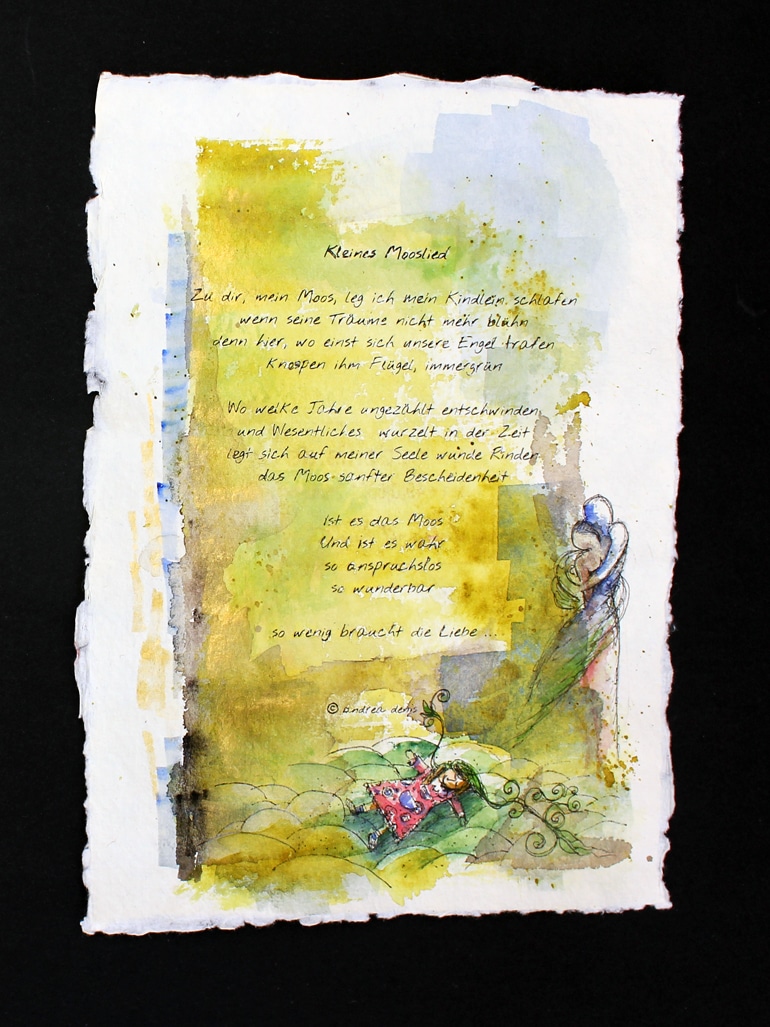 Kleines Mooslied
Zu dir, mein Moos, leg ich mein Kindlein schlafen
wenn seine Träume nicht mehr blühn
denn hier, wo einst sich unsere Engel trafen
Knospen ihm Flügel, immergrün
Wo welke Jahre ungezählt entschwinden
und Wesentliches wurzelt in der Zeit
legt sich auf meiner Seele wunde Rinden
das Moos sanfter Bescheidenheit
Ist es das Moos
Und ist es wahr
so anspruchslos
so wunderbar
so wenig braucht die Liebe ...
© andrea denis